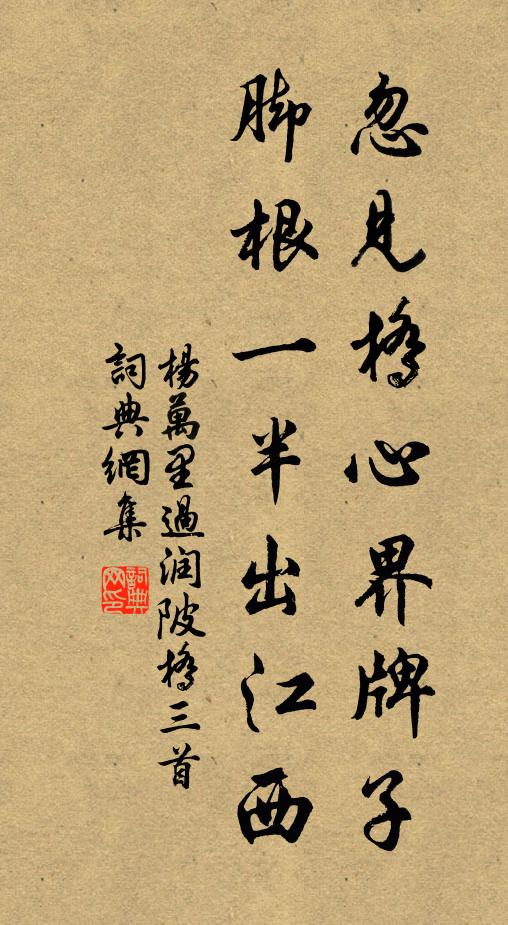 忽見橋心界牌子
脚根一半出江西
楊萬里過润陂橋三首
詞典網集
詞典网印